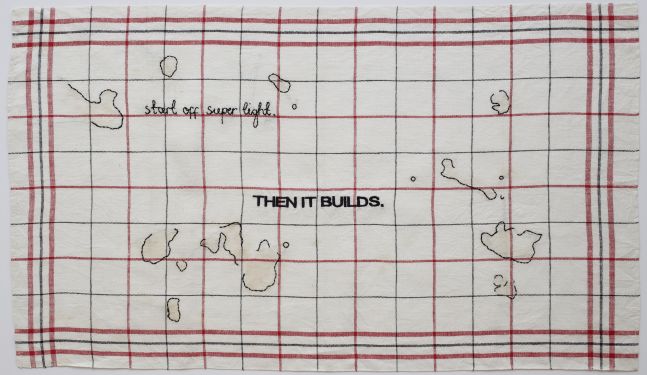 start off super light.
THEN IT BUILDS.